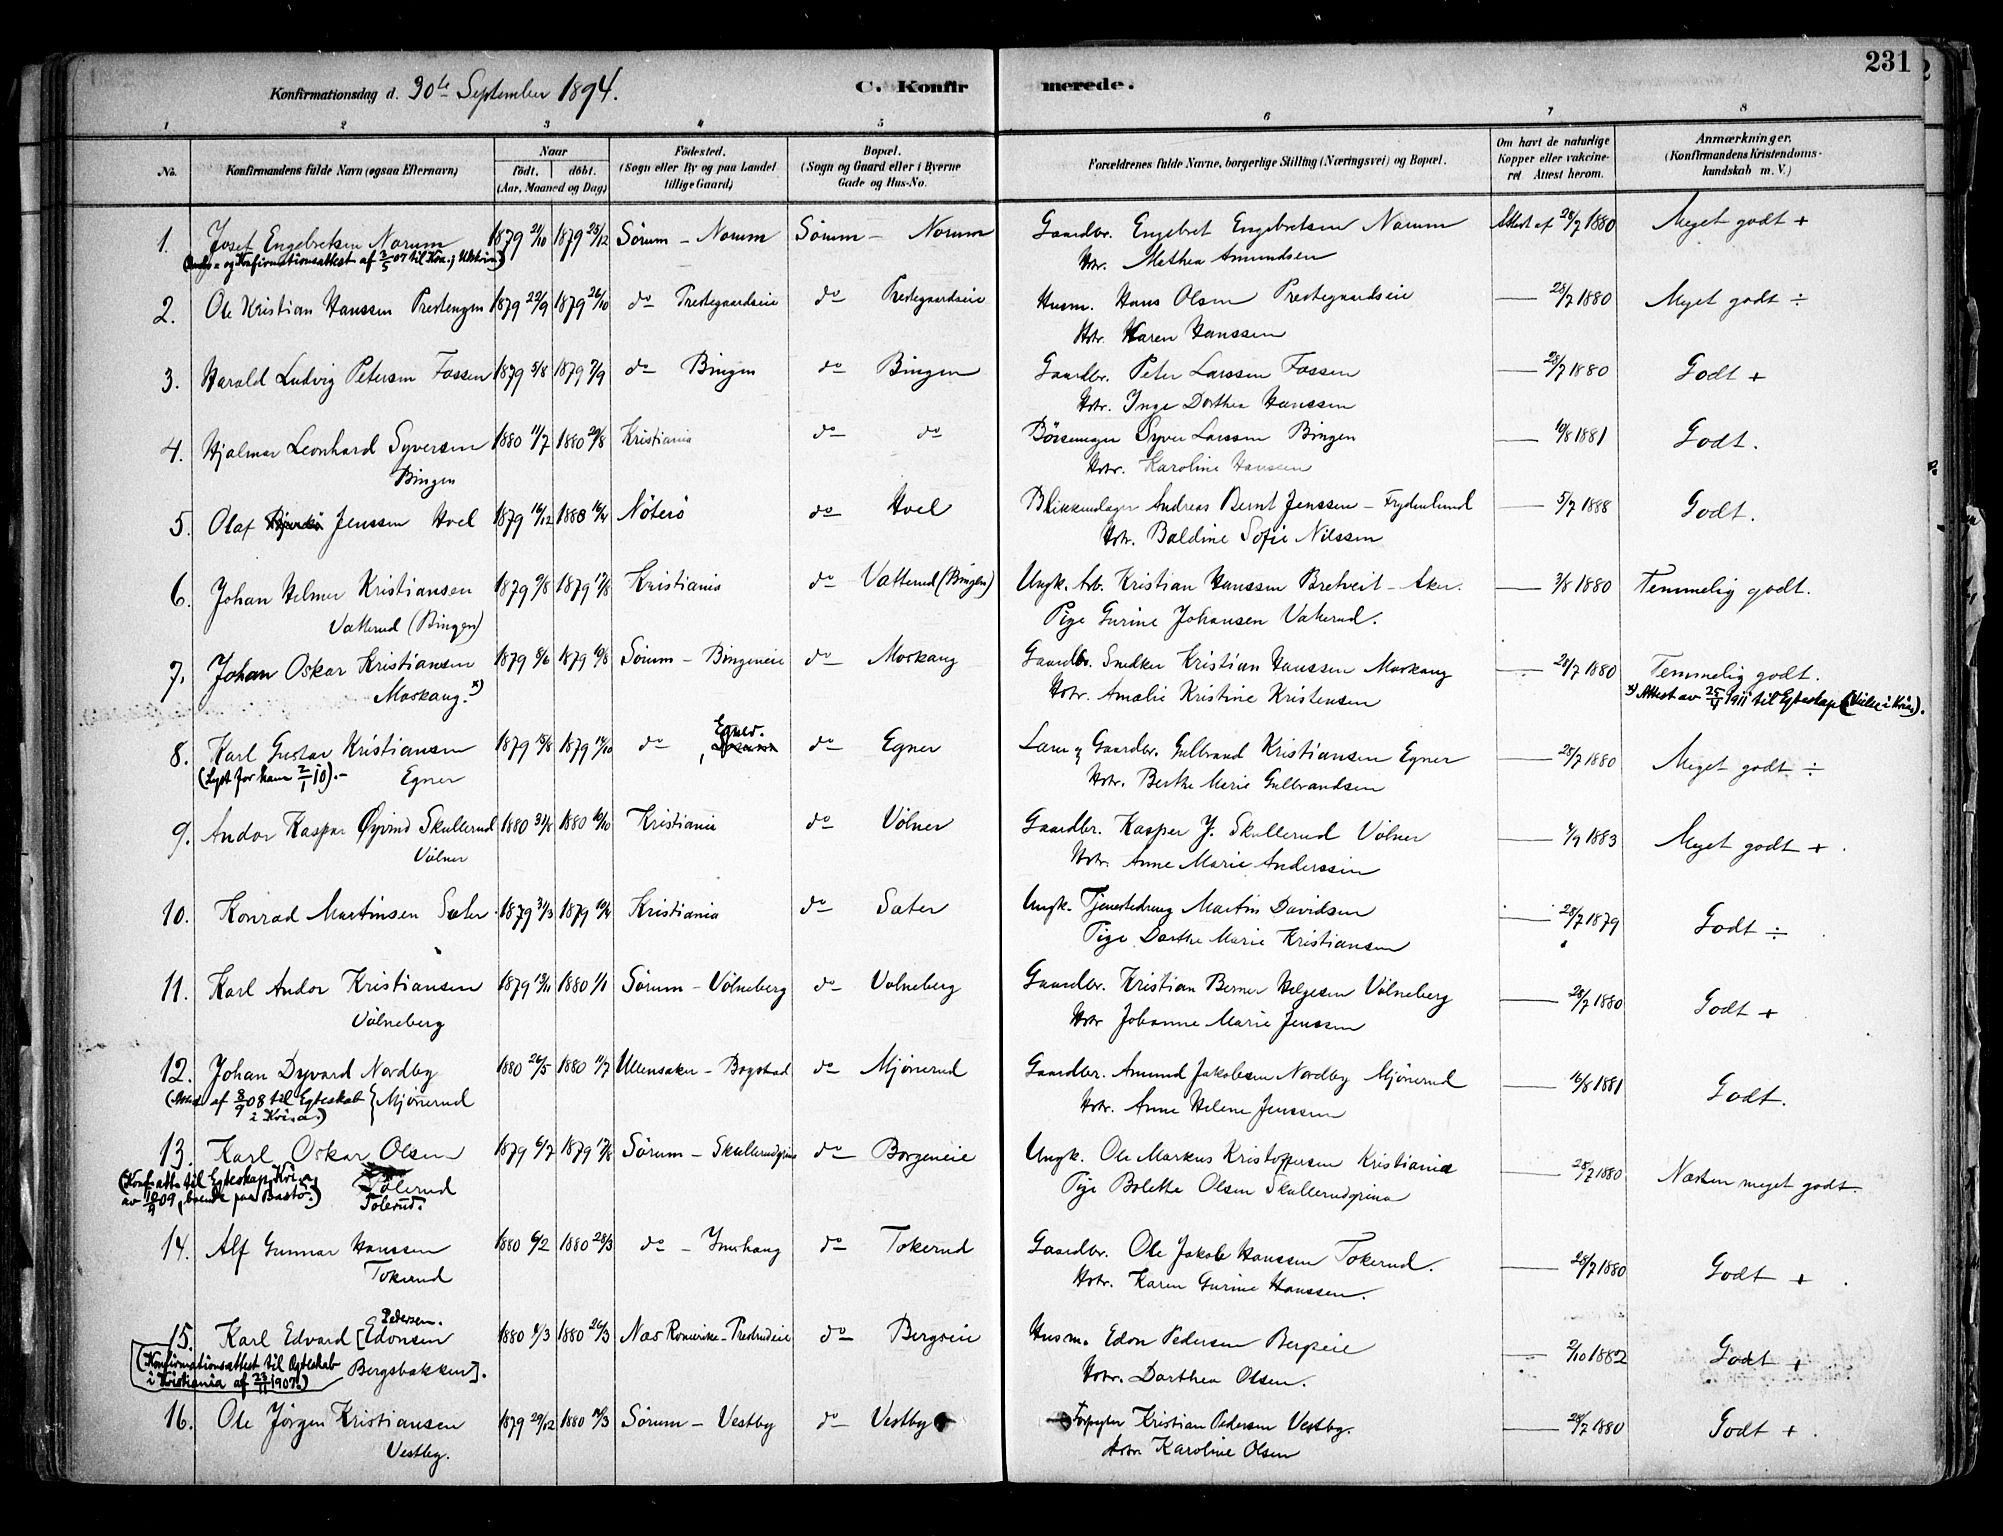 231
Konfirmationsdag d. 30te September 1894.
C. Konfirmerede.
1 2 3 4 5 6 7 8
No.
Konfirmandens fulde Navn (ogsaa Efternavn)
Naar
født. døbt.
(Aar, Maaned og Dag)
Fødested.
(Sogn eller By og paa Landet
tillige Gaard)
Bopæl.
(Sogn og Gaard eller i Byerne
Gade og Hus-No.
Forældrenes fulde Navne, borgerlige Stilling (Næringsvei) og Bopæl.
Om havt de naturlige
Kopper eller vakcine-
ret Attest herom.
Anmærkninger.
(Konfirmandens Kristendoms-
kundskab m. V.)
1. Josef Engebretsen Norum 1879 21/10 1879 25/12 Sørum - Norum Sørum - Norum Gaardbr. Engebret Engebretsen Norum Attest af 28/7 1880 Meget godt +
og Konfirmationsattest af 3/5 07 til Kra.
Hstr. Mathea Amundsen
2. Ole Kristian Hanssen Prestengen 1879 22/9 1879 26/10 do Prestegaardseie do Prestegaardseie Husm. Hans Olsen Prestegaardseie — 28/7 1880 Meget godt ÷
Hstr. Karen Hanssen
3. Harald Ludvig Petersen Fossen 1879 5/8 1879 7/9 do Bingen do Bingen Gaardbr. Peter Larssen Fossen — 28/7 1880 Godt +
Hstr. Inge Dorthea Hanssen
4. Hjalmar Leonhard Syversen 1880 11/7 1880 29/8 Kristiania do do Syver Larssen Bingen — 10/8 1881 Godt.
Bingen
Hstr. Karoline Hanssen
5. Olaf Jenssen Hvel 1879 16/12 1880 16/4 Nøterø do Hvel Blikkenslager Andreas Bernt Jenssen - Frydenlund — 5/7 1888 Godt.
Hstr. Baldine Sofie Nilssen
6. Johan Helmer Kristiansen 1879 9/8 1879 17/8 Kristiania do Vatterud (Bingen) Ungk. Arb. Kristian Hanssen Bretveit - Aker. — 3/8 1880 Temmelig godt.
Vatterud (Bingen)
Pige Gurine Johansen Vatterud.
7. Johan Oskar Kristiansen 1879 8/6 1879 10/8 Sørum - Bingeneie do Moskaug Gaardbr. Snedker Kristian Hanssen Moskaug — 28/7 1880 Temmelig godt.
Moskaug. x)
Hstr. Amalie Kristine Kristensen
x) Attest av 25/4 1911 til Egteskap
8. Karl Gustav Kristiansen 1879 15/8 1879 19/10 do Egner. do Egner Gaardbr. Gulbrand Kristiansen Egner — 28/7 1880 Meget godt ÷
(Lyst for ham 2/1 10). - Egner
Hstr. Berthe Marie Gulbrandsen
9. Andor Kaspar Øyvind Skullerud 1880 31/8 1880 10/10 Kristiania do Vølner Gaardbr. Kasper J. Skullerud Vølner — 4/9 1883 Meget godt +
Vølner
Hstr. Anne Marie Anderssen
10. Konrad Martinsen Sæter 1879 31/3 1879 10/4 Kristiania do Sæter Ungk. Tjenestedreng Martin Davidsen — 28/7 1879 Godt ÷
Pige Dorthe Marie Kristiansen
11. Karl Andor Kristiansen 1879 13/11 1880 1/1 Sørum - Vølneberg do Vølneberg Gaardbr. Kristian Berner Helgesen Vølneberg — 28/7 1880 Godt +
Vølneberg
Hstr Johanne Marie Jenssen
12. Johan Dyvard Nordby 1880 26/5 1880 11/7 Ullensaker - Bogstad do Mjønerud Gaardbr. Amund Jakobsen Nordby Mjønerud — 16/8 1881 Godt.
af 8/9 08 til Egteskab Mjønerud
i Kri.a.)
Hstr. Anne Helene Jenssen
13. Karl Oskar Olsen 1879 6/7 1879 17/8 Sørum - Skullerudgrina do Borgeneie Ungk. Ole Markus Kristoffersen Kristiania — 28/7 1880 Næsten meget godt.
(Konf.att. til Egteskap, Kri.a,
Tolerud
Tolerud.
Pige Bolette Olsen Skullerudgrina
14. Alf Gunnar Hanssen 1880 6/2 1880 28/3 do - do Tokerud Gaardbr. Ole Jakob Hanssen Tokerud. — 28/7 1880 Godt +
Tokerud
Hstr. Karen Gurine Hanssen.
Pedersen.
15. Karl Edvard [Edonsen 1880 1880 26/3 Næs Romerike - do Bergseie Husm. Edon Pedersen Bergseie 2/10 1882 Godt +
(Konfirmationsattest til Egteskab Bergsbakken].
i Kristiania af 23/11 1907.)
Hstr. Dorthea Olsen.
16. Ole Jørgen Kristiansen 1879 29/12 1880 Sørum - Vestby do Vestby Forpagter Kristian Pedersen Vestby. — 28/7 1880 Godt +
Vestby.
Hstr. Karoline Olsen